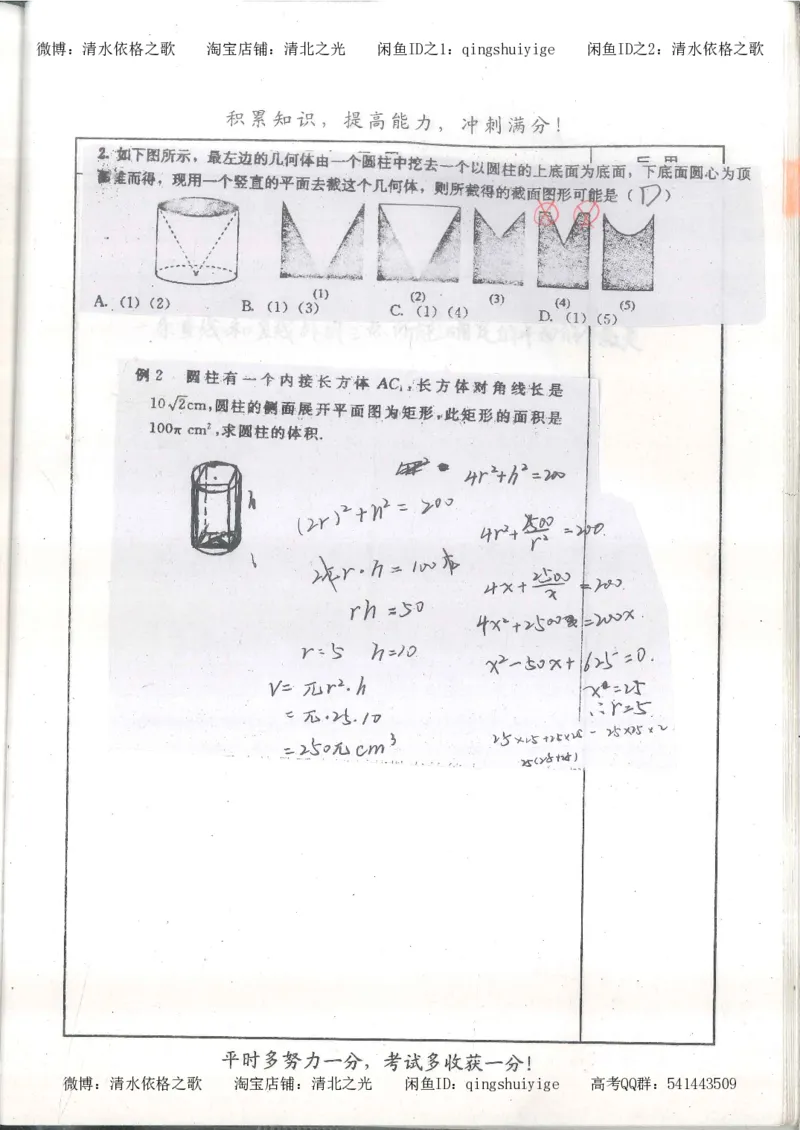 微博：清水依格之歌 淘宝店铺：清北之光 闲鱼ID之1：qingshuiyige 闲鱼ID之2：清水依格之歌
积累知识，提高能力，冲刺满分！
2. 如下图所示，最左边的几何体由一个圆柱中挖去一个以圆柱的上底面为底面，下底面圆心为顶
圆锥而得，现用一个竖直的平面去截这个几何体，则所截得的截面图形可能是（D）
(1) (2) (3) (4) (5)
A.（1）（2） B.（1）（3） C.（1）（4） D.（1）（5）
例 2 圆柱有一个内接长方体 AC₁，长方体对角线长是
10√2cm，圆柱的侧面展开平面图为矩形，此矩形的面积是
100π cm²，求圆柱的体积.
h
4r²+h²=200
(2r)²+h²=200
4r²+2500/r²=200.
2πr·h=100π
4x+2500/x=200.
rh=50
4x²+2500=200x.
r=5 h=10
x²-50x+625=0.
V=πr²·h
x=25
∴r=5.
=π·25·10
=250π cm³
25(25+25)
平时多努力一分，考试多收获一分！
微博：清水依格之歌 淘宝店铺：清北之光 闲鱼ID：qingshuiyige 高考QQ群：541443509